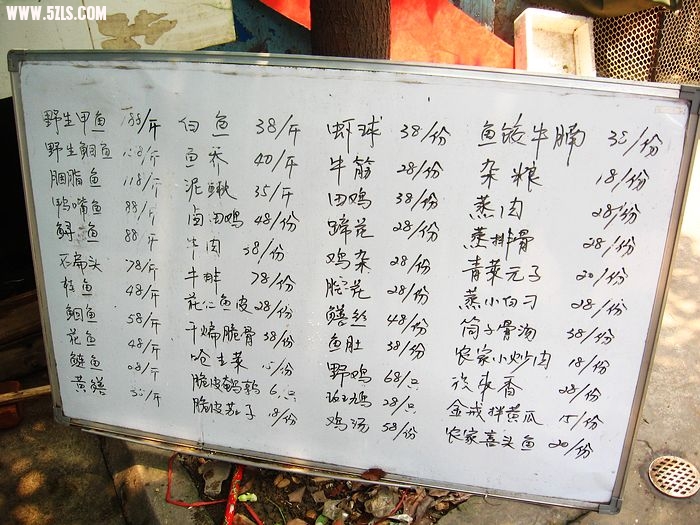 WWW.5ZLS.COM
野生甲鱼 188/斤
野生鮰鱼 128/斤
胭脂鱼 118/斤
鸭嘴鱼 88/斤
鲟鱼 88/斤
扁头 78/斤
鱼 48/斤
鮰鱼 58/斤
花鱼 48/斤
鲢鱼
黄鳝
白鱼 38/斤
鱼乔 40/斤
泥鳅 35/斤
卤田鸡 48/份
牛肉 38/份
牛排 78/份
花仁鱼皮 28/份
干煸脆骨 38/份
呛生菜 15/份
脆皮鹌鹑 6/只
脆皮茄子 18/份
虾球 38/份
牛筋 28/份
田鸡 38/份
蹄花 28/份
鸡杂 28/份
腰花 28/份
鳝丝 48/份
鱼肚 38/份
野鸡 68/只
28/只
鸡汤 58/份
鱼饺牛腩 38/份
杂粮 18/份
蒸肉 28/份
蒸排骨 28/份
青菜元子 20/份
蒸小白刁 28/份
筒子骨汤 38/份
农家小炒肉 18/份
香 28/份
金戒拌黄瓜 15/份
农家喜头鱼 20/份